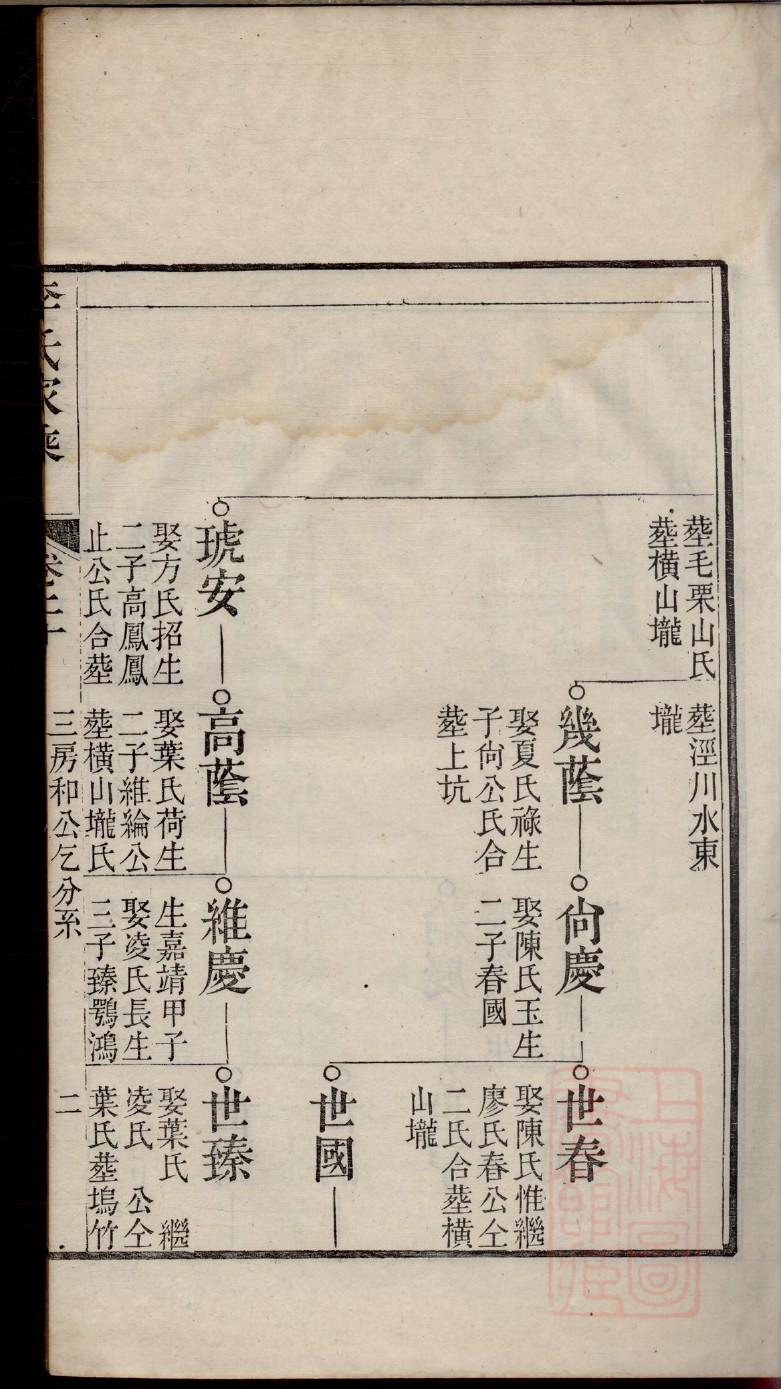 塟毛栗山氏
塟橫山壠
塟涇川水東
壠
幾蔭
娶夏氏祿生
子尙公氏合
塟上坑
尙慶
娶陳氏玉生
二子春國
世春
娶陳氏惟繼
廖氏春公仝
二氏合塟橫
山壠
世國
琥安
娶方氏招生
二子高鳳鳳
止公氏合塟
高蔭
娶葉氏荷生
二子維綸公
塟橫山壠氏
維慶
生嘉靖甲子
娶凌氏長生
三子臻鶚鴻
世臻
娶葉氏 繼
凌氏 公仝
葉氏塟塢竹
李氏家乘
卷二十
三房和公乞分系
二
上海圖
書館藏